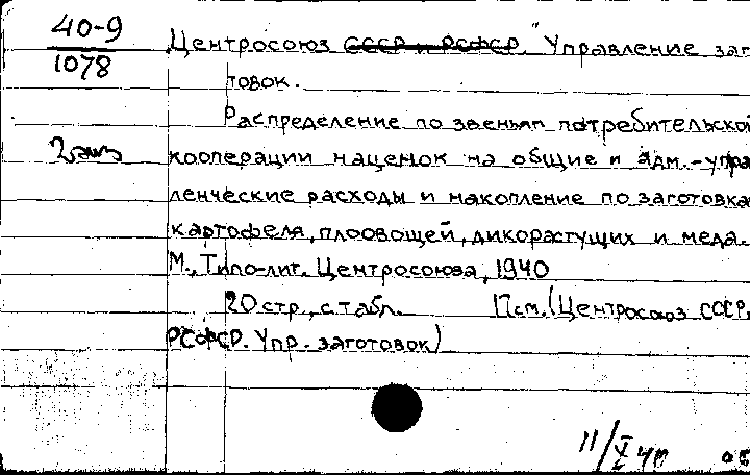 40-9
1078
Центросоюз СССР и РСФСР. "Управление заг
товок.
Распределение по звеньям потребительской
2 экз
кооперации наценок на общие и адм.-упра
ленческие расходы и накопление по заготовка
картофеля, плоовощей, дикорастущих и меда.
М., Типо-лит. Центросоюза, 1940
20 стр., с табл. 17см. (Центросоюз СССР,
РСФСР. Упр. заготовок)
11/X 40